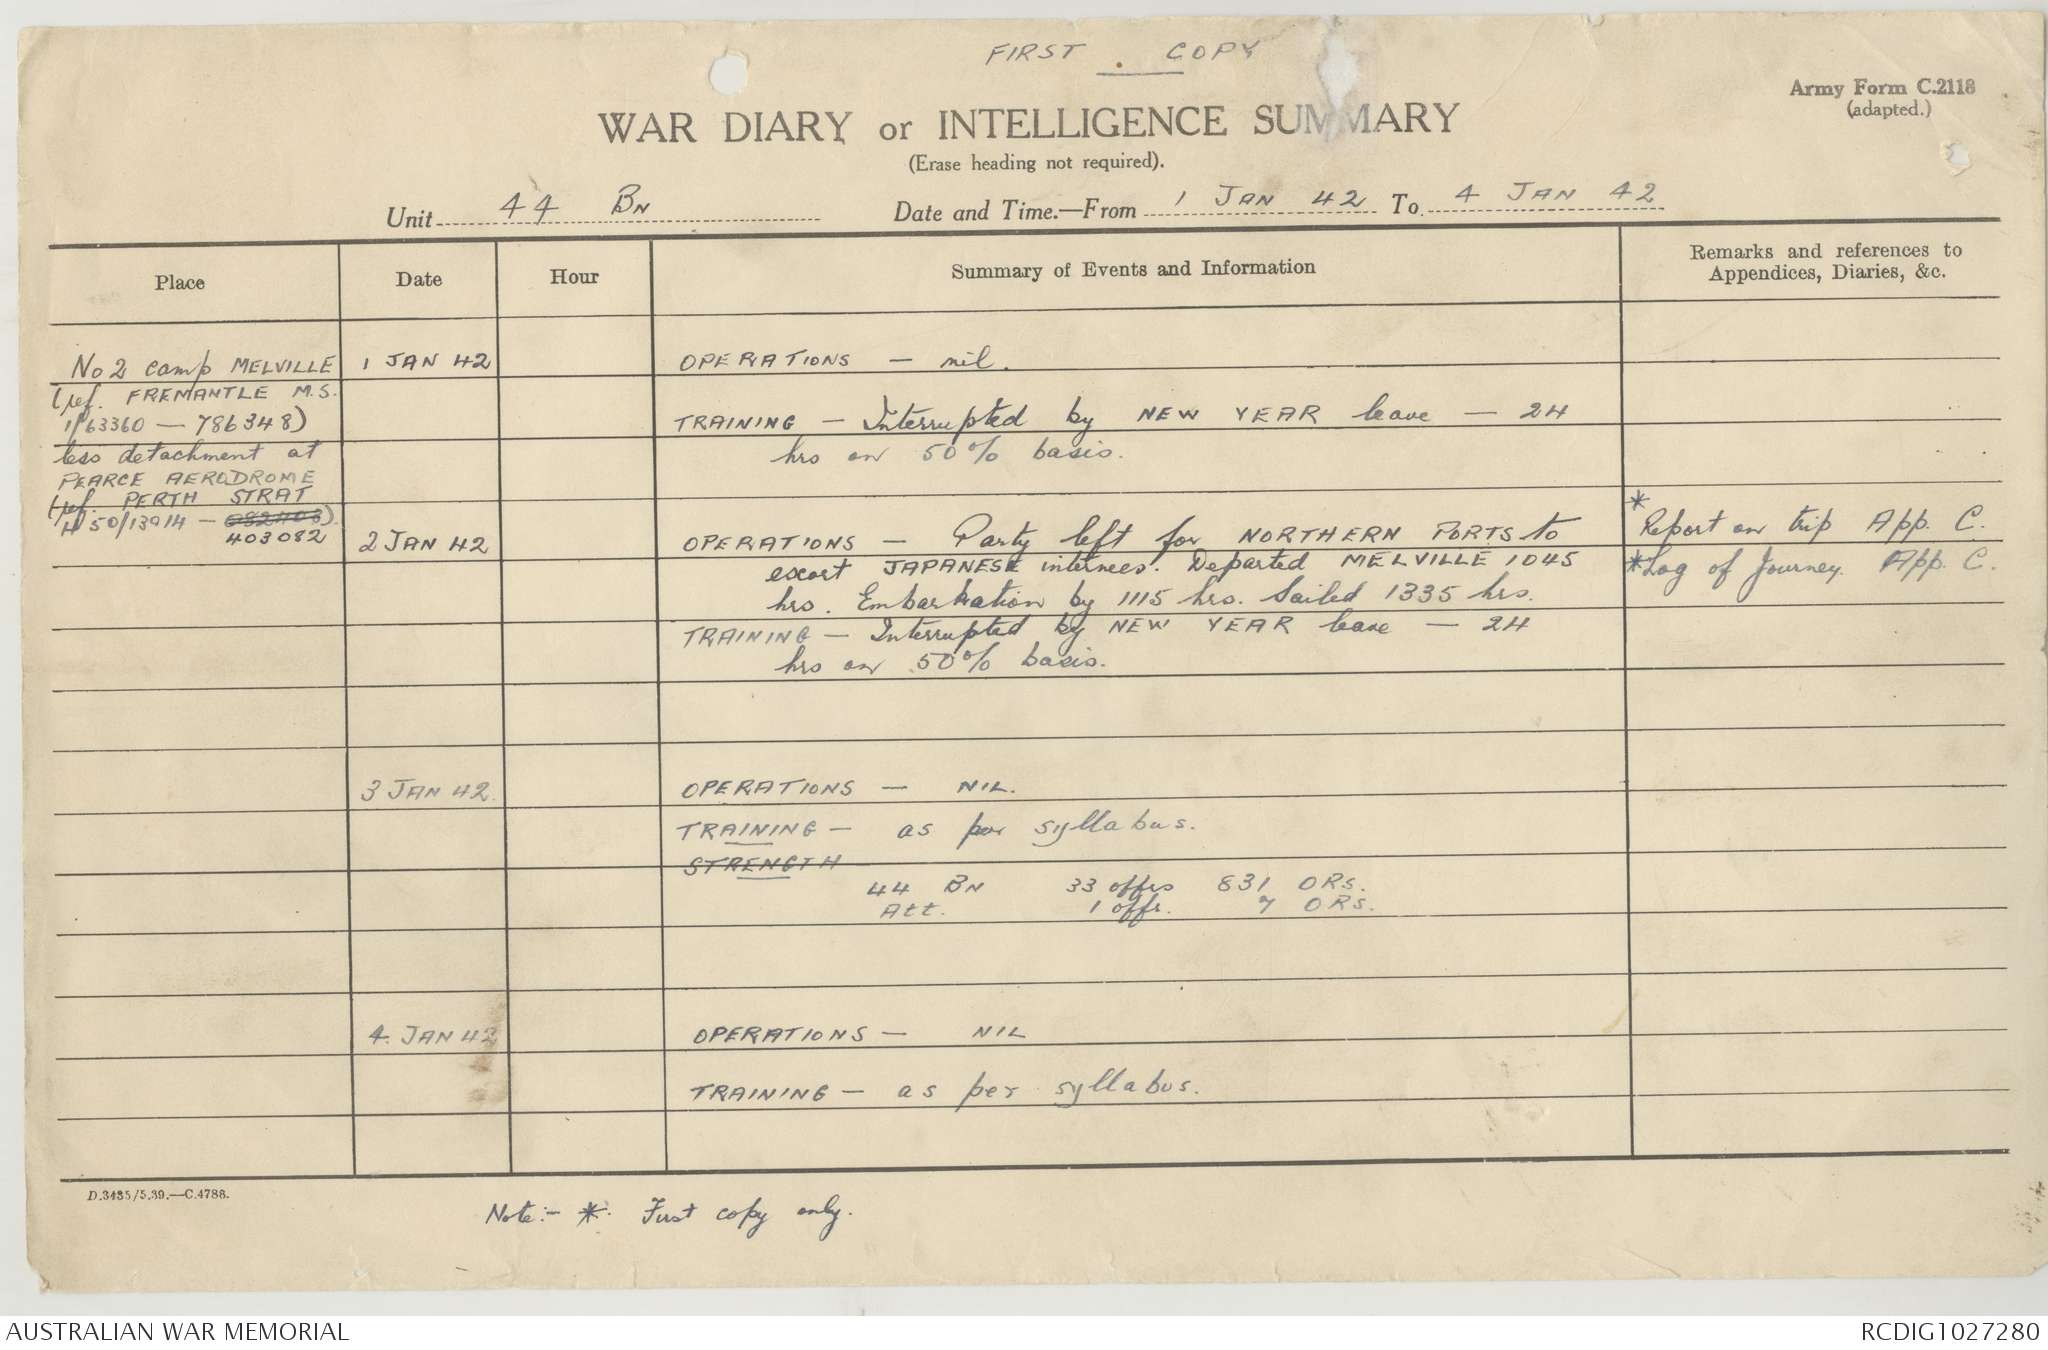 FIRST . COPY
Army Form C.2118
(adapted.)
WAR DIARY or INTELLIGENCE SUMMARY
(Erase heading not required).
Unit 44 BN Date and Time.—From 1 JAN 42 To 4 JAN 42
Place Date Hour Summary of Events and Information Remarks and references to
Appendices, Diaries, &c.
No 2 camp MELVILLE 1 JAN 42 OPERATIONS — nil.
(ref. FREMANTLE M.S.
1/63360 — 786348) TRAINING — Interrupted by NEW YEAR leave — 24
less detachment at hrs on 50% basis.
PEARCE AERODROME
(ref. PERTH STRAT *
4 50/13914 — 082403) Report on trip App. C.
403082 2 JAN 42 OPERATIONS — Party left for NORTHERN PORTS to
escort JAPANESE internees. Departed MELVILLE 1045 *Log of Journey. App. C.
hrs. Embarkation by 1115 hrs. Sailed 1335 hrs.
TRAINING — Interrupted by NEW YEAR leave — 24
hrs on 50% basis.
3 JAN 42. OPERATIONS — NIL.
TRAINING — as per syllabus.
STRENGTH
44 BN 33 offrs 831 ORs.
Att. 1 offr. 7 ORs.
4 JAN 42 OPERATIONS — NIL
TRAINING — as per syllabus.
D.3435/5.39.—C.4788.
Note:- * First copy only.
AUSTRALIAN WAR MEMORIAL RCDIG1027280